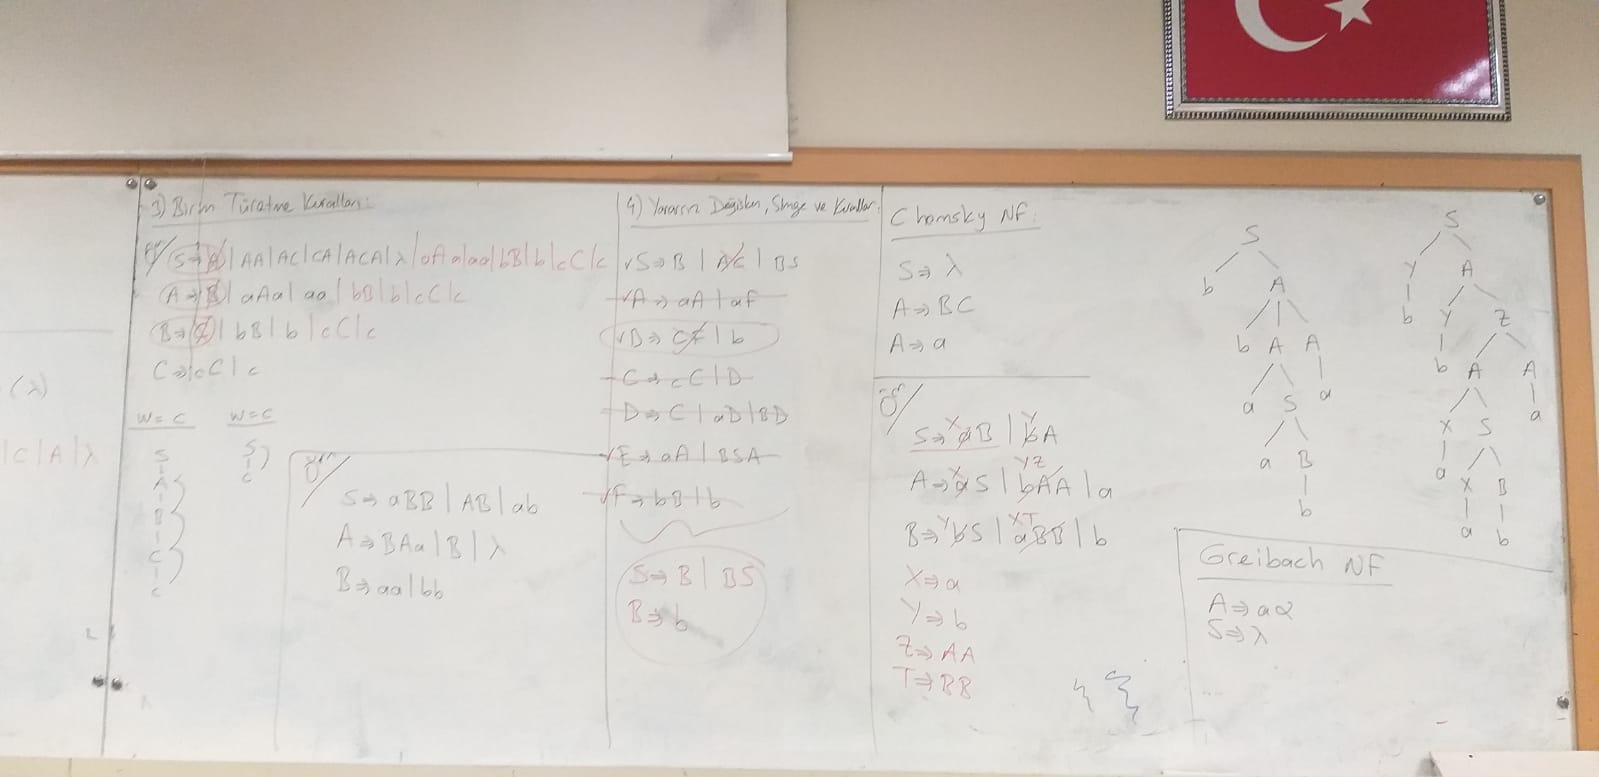 3) Birim Türetme Kuralları:
ör/ S⇒A|AA|AC|CA|ACA|λ|aAa|aa|bB|b|cC|c
A⇒B|aAa|aa|bB|b|cC|c
B⇒C|bB|b|cC|c
C⇒cC|c
(λ)
|C|A|λ
w=c
S
A
B
C
c
w=c
S
c
ör/
S⇒aBB|AB|ab
A⇒BAa|B|λ
B⇒aa|bb
4) Yararsız Değişken, Simge ve Kurallar:
√S⇒B|AC|BS
√A⇒aA|aF
√B⇒CF|b
C⇒cC|D
D⇒C|aD|BD
√E⇒aA|BSA
√F⇒bB|b
S⇒B|BS
B⇒b
Chomsky NF:
S⇒λ
A⇒BC
A⇒a
ör/
X Y
S⇒aB|bA
X YZ
A⇒aS|bAA|a
Y XT
B⇒bS|aBB|b
X⇒a
Y⇒b
Z⇒AA
T⇒BB
S
b A
b A A
a S a
a B
b
S
Y A
b Y Z
b A A
X S a
a X B
a b
Greibach NF
A⇒aα
S⇒λ